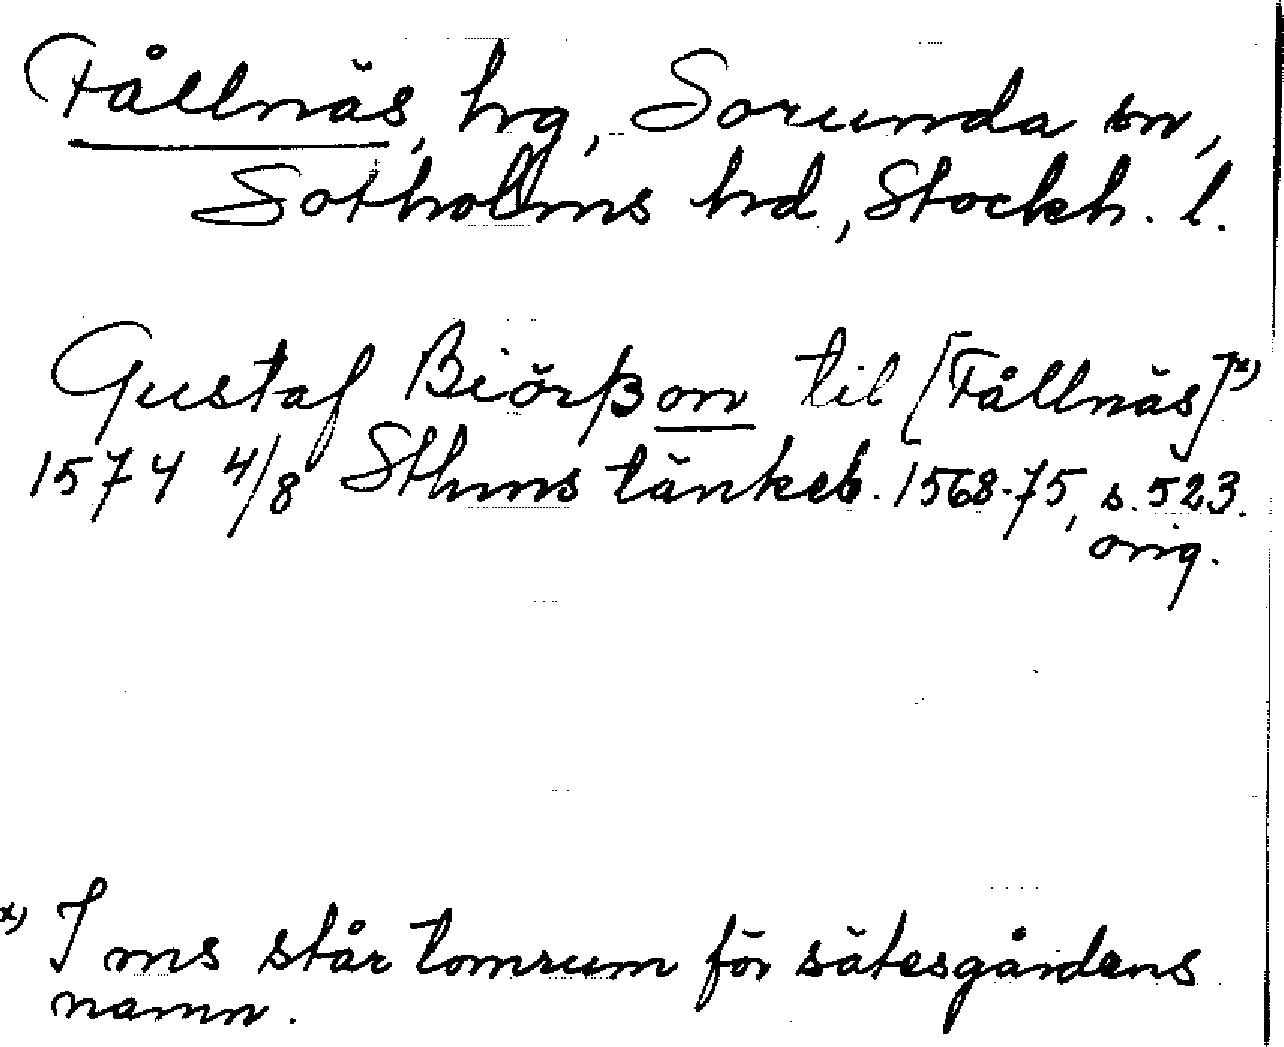 Fållnäs, hrg, Sorunda sn,
Sotholms hrd, Stockh. l.
Gustaf Biörßon til [Fållnäs]x)
1574 4/8 Sthms tänkeb. 1568-75, s. 523.
orig.
x) I ms står tomrum för sätesgårdens
namn.